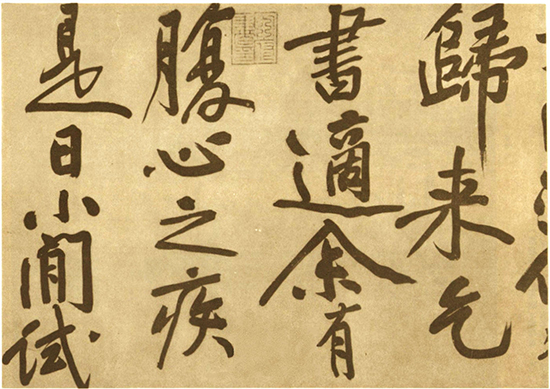 歸来乞
書適余有
腹心之疾
是日小閒試